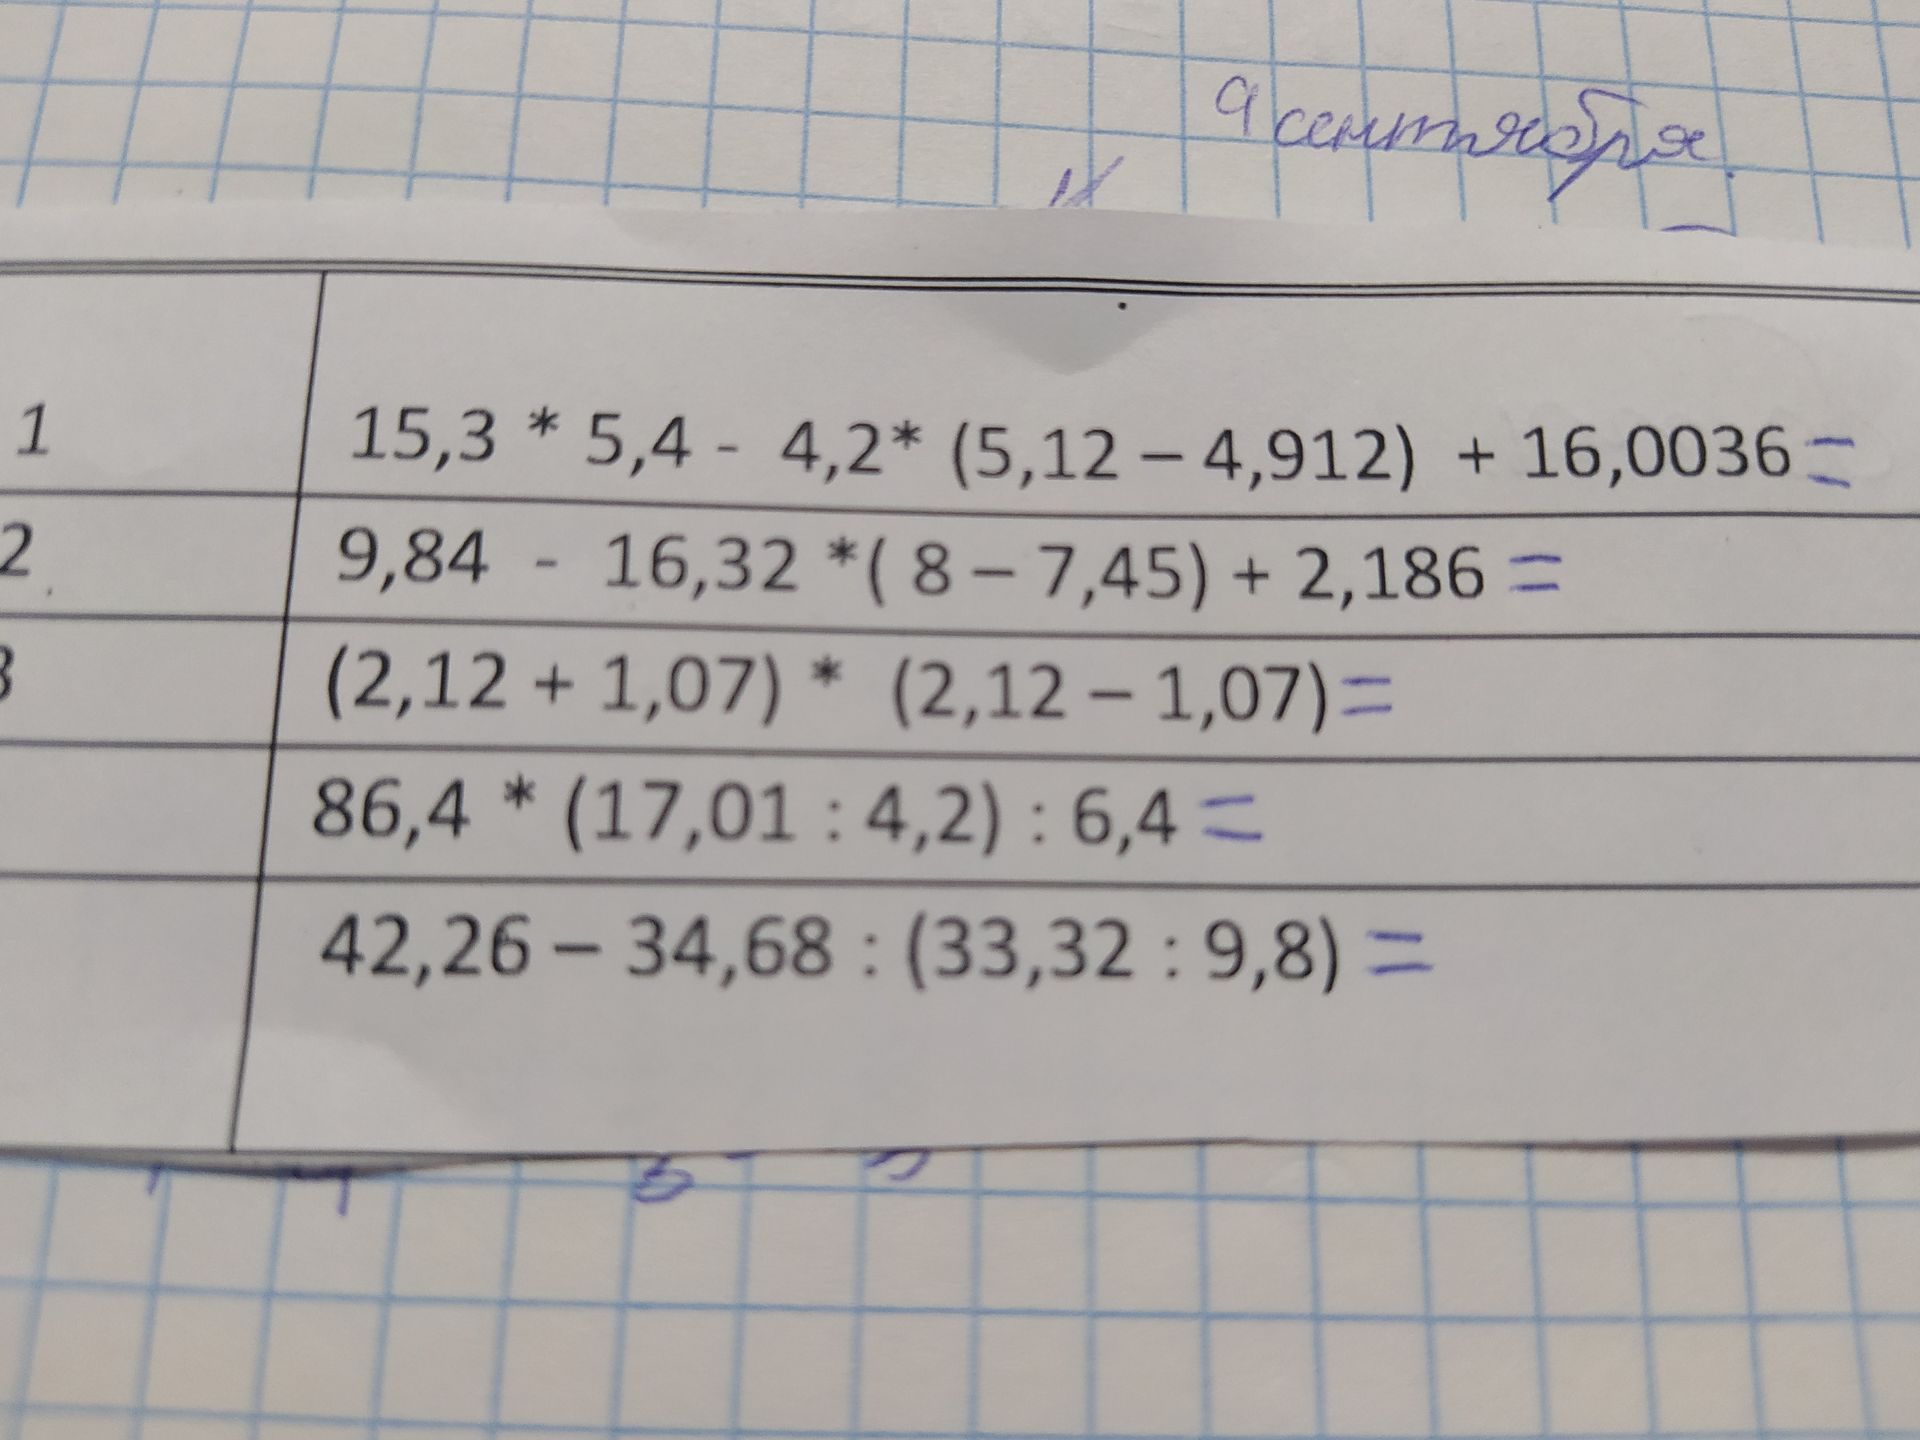 9 сентября.
1 15,3 * 5,4 - 4,2* (5,12 – 4,912) + 16,0036 =
2 9,84 - 16,32 *( 8 – 7,45) + 2,186 =
3 (2,12 + 1,07) * (2,12 – 1,07) =
86,4 * (17,01 : 4,2) : 6,4 =
42,26 – 34,68 : (33,32 : 9,8) =